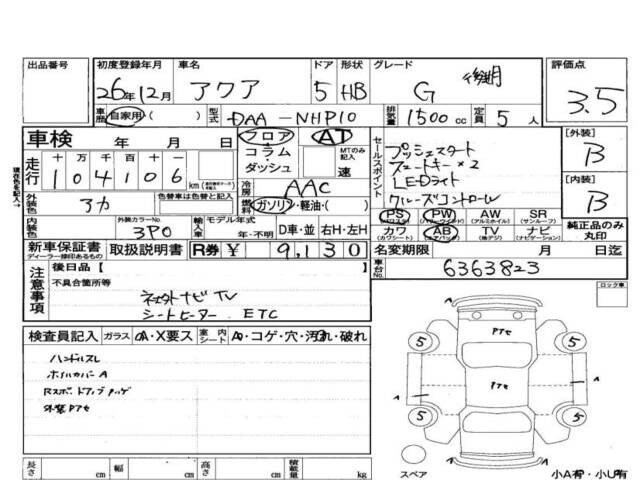 出品番号
初度登録年月 車名 ドア 形状 グレード 評価点
26年12月 アクア 5 HB G 後期 3.5
車歴 自家用・( ) 型式 DAA-NHP10 排気量 1500cc 定員 5人
車検 年 月 日
フロア・コラム・ダッシュ
AT
MTのみ記入 速
セールスポイント
プッシュスタート
スマートキー×2
LEDライト
クルーズコントロール
[外装] B
[内装] B
現在色を記入↗
走行 十 万 千 百 十
104106 km
冷房 AAC
燃料 ガソリン・軽油・( )
外装色 アカ
色替車は色替と記入
内装色
外装カラーNo. 3P0
輸入車 モデル年式 年・不明 D車・並 右H・左H
PS PW AW SR
(パワステ) (パワーウインド) (アルミホイル) (サンルーフ)
カワ AB TV ナビ
(カワシート) (エアバック) (地デジ) (ナビゲーション)
純正品のみ丸印
新車保証書 取扱説明書 R券 ¥9,130
ディーラー捺印あるもの
名変期限 月 日迄
車台No. 6363823
注意事項
後日品[ ]
不具合箇所等
社外ナビTV
シートヒーター ETC
ロック車
検査員記入 ガラス OA・X要ス 室内シート AO・コゲ・穴・汚れ・破れ
ハンドルスレ
ホイルカバーA
外装PTセ
PTセ
PTセ
A
A
A
5
5
5
5
スペア
小A有・小U有
長さ cm 幅 cm 高さ cm 積載量 kg